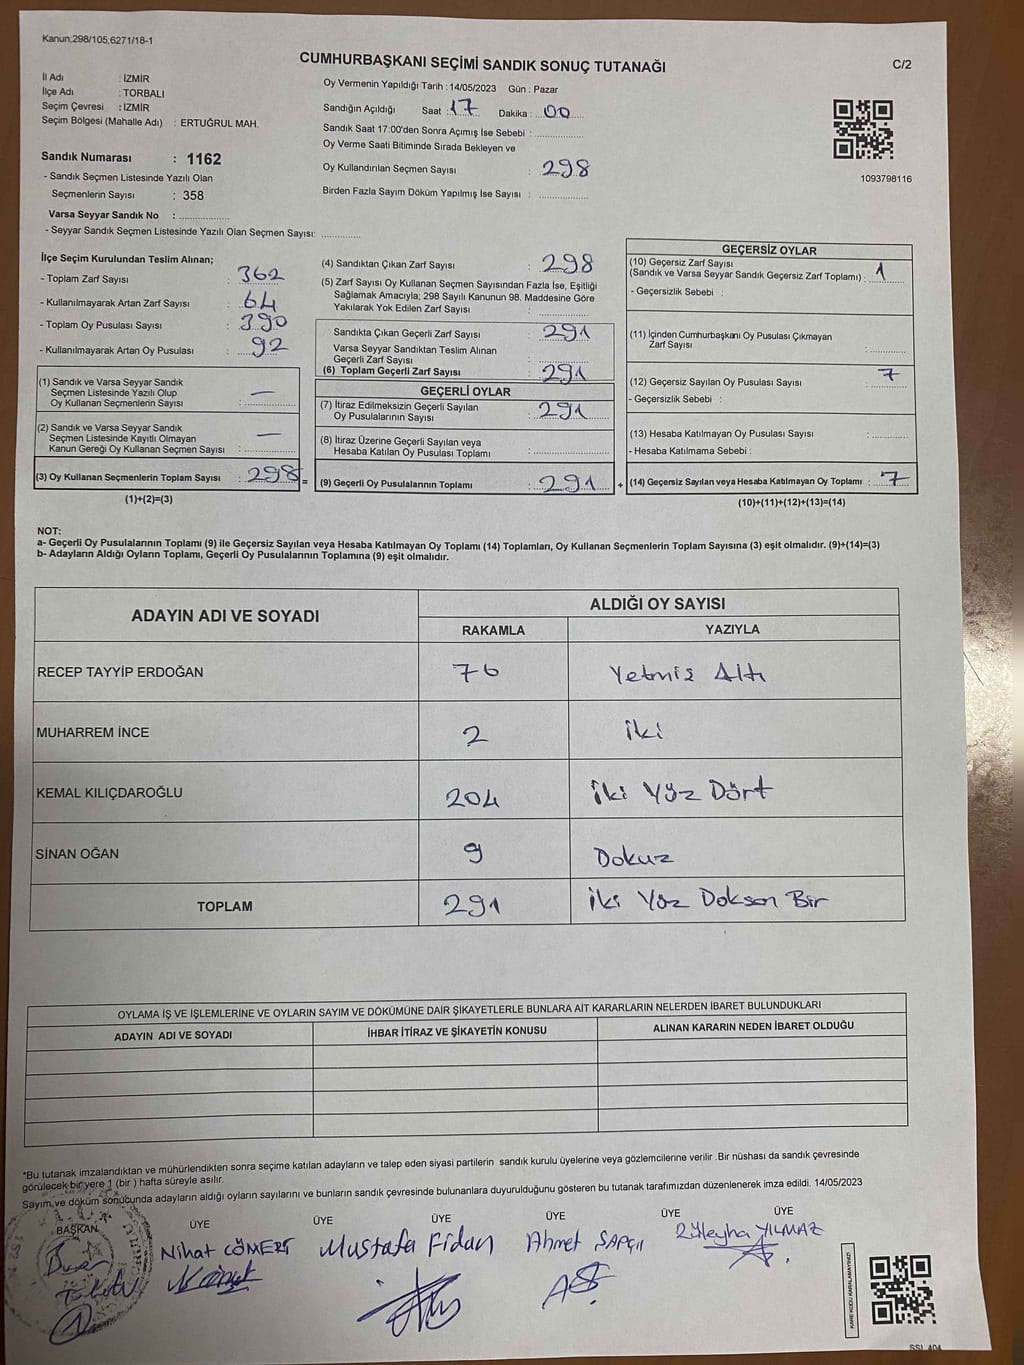 Kanun;298/105,6271/18-1
CUMHURBAŞKANI SEÇİMİ SANDIK SONUÇ TUTANAĞI
C/2
İl Adı : İZMİR
İlçe Adı : TORBALI
Seçim Çevresi : İZMİR
Seçim Bölgesi (Mahalle Adı) : ERTUĞRUL MAH.
Sandık Numarası : 1162
- Sandık Seçmen Listesinde Yazılı Olan
Seçmenlerin Sayısı : 358
Varsa Seyyar Sandık No :
- Seyyar Sandık Seçmen Listesinde Yazılı Olan Seçmen Sayısı:
Oy Vermenin Yapıldığı Tarih : 14/05/2023 Gün : Pazar
Sandığın Açıldığı Saat : 17 Dakika : 00
Sandık Saat 17:00'den Sonra Açımış İse Sebebi :
Oy Verme Saati Bitiminde Sırada Bekleyen ve
Oy Kullandırılan Seçmen Sayısı : 298
Birden Fazla Sayım Döküm Yapılmış İse Sayısı :
1093798116
İlçe Seçim Kurulundan Teslim Alınan;
- Toplam Zarf Sayısı : 362
- Kullanılmayarak Artan Zarf Sayısı : 64
- Toplam Oy Pusulası Sayısı : 390
- Kullanılmayarak Artan Oy Pusulası : 92
(1) Sandık ve Varsa Seyyar Sandık
Seçmen Listesinde Yazılı Olup
Oy Kullanan Seçmenlerin Sayısı : —
(2) Sandık ve Varsa Seyyar Sandık
Seçmen Listesinde Kayıtlı Olmayan
Kanun Gereği Oy Kullanan Seçmen Sayısı : —
(3) Oy Kullanan Seçmenlerin Toplam Sayısı : 298 =
(1)+(2)=(3)
(4) Sandıktan Çıkan Zarf Sayısı : 298
(5) Zarf Sayısı Oy Kullanan Seçmen Sayısından Fazla İse, Eşitliği
Sağlamak Amacıyla; 298 Sayılı Kanunun 98. Maddesine Göre
Yakılarak Yok Edilen Zarf Sayısı :
Sandıkta Çıkan Geçerli Zarf Sayısı : 291
Varsa Seyyar Sandıktan Teslim Alınan
Geçerli Zarf Sayısı :
(6) Toplam Geçerli Zarf Sayısı : 291
GEÇERLİ OYLAR
(7) İtiraz Edilmeksizin Geçerli Sayılan
Oy Pusulalarının Sayısı : 291
(8) İtiraz Üzerine Geçerli Sayılan veya
Hesaba Katılan Oy Pusulası Toplamı :
(9) Geçerli Oy Pusulalarının Toplamı : 291 +
GEÇERSİZ OYLAR
(10) Geçersiz Zarf Sayısı
(Sandık ve Varsa Seyyar Sandık Geçersiz Zarf Toplamı) : 1
- Geçersizlik Sebebi :
(11) İçinden Cumhurbaşkanı Oy Pusulası Çıkmayan
Zarf Sayısı :
(12) Geçersiz Sayılan Oy Pusulası Sayısı : 7
- Geçersizlik Sebebi :
(13) Hesaba Katılmayan Oy Pusulası Sayısı :
- Hesaba Katılmama Sebebi :
(14) Geçersiz Sayılan veya Hesaba Katılmayan Oy Toplamı : 7
(10)+(11)+(12)+(13)=(14)
NOT:
a- Geçerli Oy Pusulalarının Toplamı (9) ile Geçersiz Sayılan veya Hesaba Katılmayan Oy Toplamı (14) Toplamları, Oy Kullanan Seçmenlerin Toplam Sayısına (3) eşit olmalıdır. (9)+(14)=(3)
b- Adayların Aldığı Oyların Toplamı, Geçerli Oy Pusulalarının Toplamına (9) eşit olmalıdır.
ADAYIN ADI VE SOYADI
ALDIĞI OY SAYISI
RAKAMLA YAZIYLA
RECEP TAYYİP ERDOĞAN 76 Yetmiş Altı
MUHARREM İNCE 2 İki
KEMAL KILIÇDAROĞLU 204 İki Yüz Dört
SİNAN OĞAN 9 Dokuz
TOPLAM 291 İki Yüz Doksan Bir
OYLAMA İŞ VE İŞLEMLERİNE VE OYLARIN SAYIM VE DÖKÜMÜNE DAİR ŞİKAYETLERLE BUNLARA AİT KARARLARIN NELERDEN İBARET BULUNDUKLARI
ADAYIN ADI VE SOYADI İHBAR İTİRAZ VE ŞİKAYETİN KONUSU ALINAN KARARIN NEDEN İBARET OLDUĞU
*Bu tutanak imzalandıktan ve mühürlendikten sonra seçime katılan adayların ve talep eden siyasi partilerin sandık kurulu üyelerine veya gözlemcilerine verilir .Bir nüshası da sandık çevresinde
görülecek bir yere 1 (bir ) hafta süreyle asılır.
Sayım ve döküm sonucunda adayların aldığı oyların sayılarını ve bunların sandık çevresinde bulunanlara duyurulduğunu gösteren bu tutanak tarafımızdan düzenlenerek imza edildi. 14/05/2023
BAŞKAN ÜYE ÜYE ÜYE ÜYE ÜYE ÜYE
Nihat CÖMERT Mustafa Fidan Ahmet SAPÇII Züleyha YILMAZ
KARE KODU KARALAMAYINIZ!